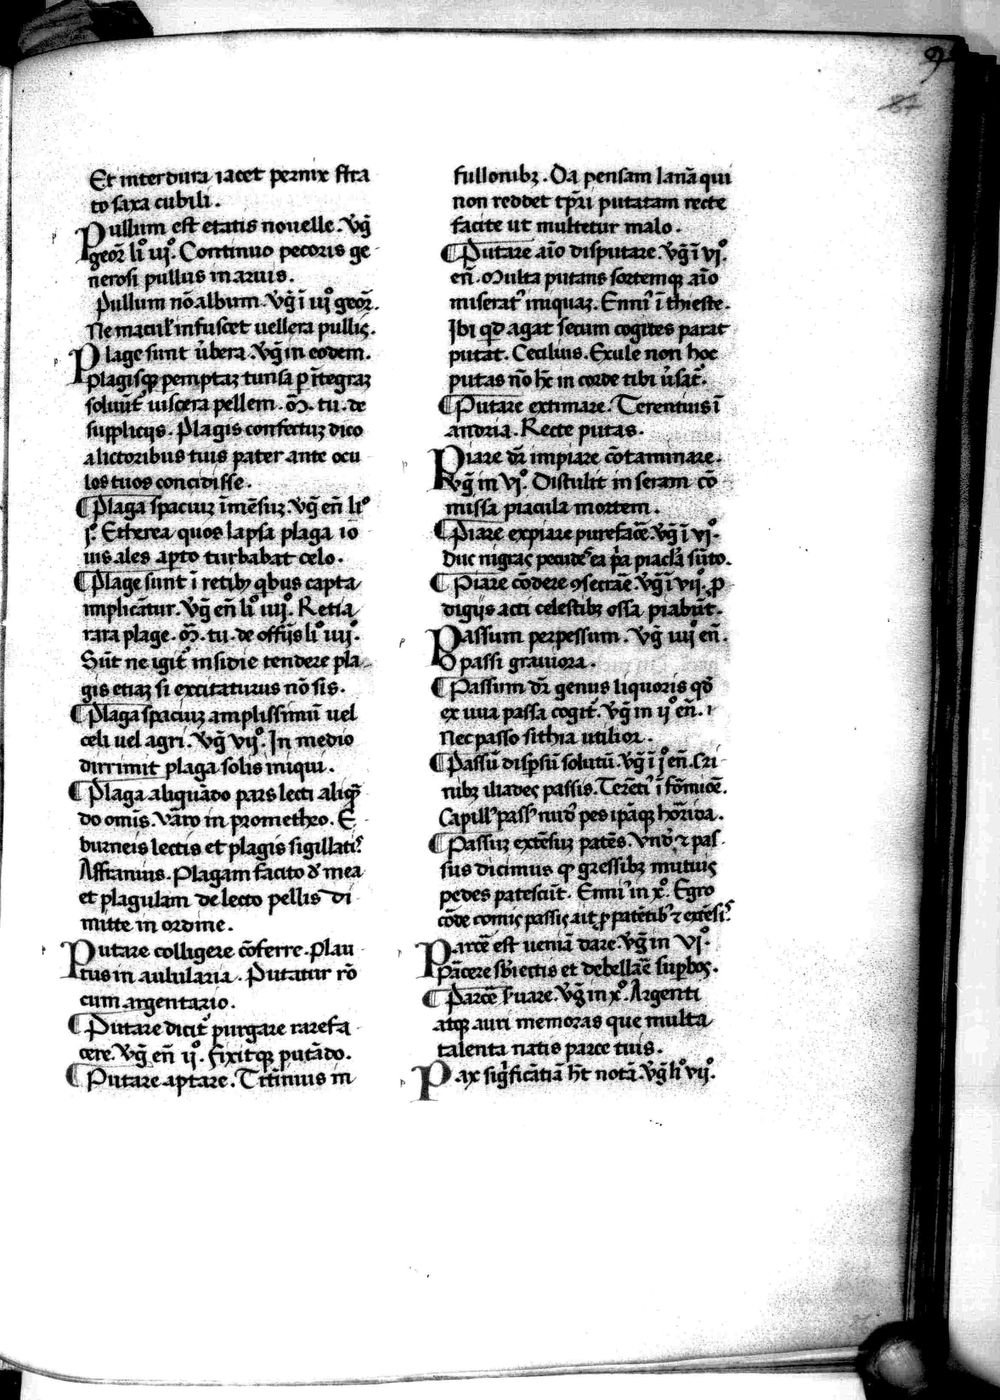 87
Et inter dura iacet pernix stra
to saxa cubili.
Pullum est etatis nouelle. Vg̃
geor̃ li° iij°. Continuo pecoris ge
nerosi pullus in aruis.
Pullum nõ album. Vg̃ ĩ iij° geor̃.
Ne macul' infuscet uellera pullis.
Plage sunt ũbera. Vg̃ in eodem.
plagisqꝫ pemptaꝫ tunsa ꝑ ĩtegraꝫ
soluũt uiscera pellem. M̃. tu. de
supplicijs. Plagis confectuꝫ dico
a lictoribus tuis pater ante ocu
los tuos concidisse.
¶ Plaga spaciuꝫ ĩmẽsuꝫ. Vg̃ eñ li°
j°. Etherea quos lapsa plaga io
uis ales apto turbabat celo.
¶ Plage sunt ĩ retibꝫ qbus capta
implicãtur. Vg̃ eñ li° iiij°. Retia
rara plage. M̃. tu. de offijs li° iiij°.
Sũt ne igit̃ insidie tendere pla
gis etiaꝫ si excitaturus nõ sis.
¶ Plaga spaciuꝫ amplissimũ uel
celi uel agri. Vg̃ vij°. In medio
dirrimit plaga solis iniqui.
¶ Plaga aliquãdo pars lecti aliqñ
do omis̃. Vãro in prometheo. E
burneis lectis et plagis sigillatis
Affranius. Plagam facito de mea
et plagulam de lecto pellis di
mitte in ordine.
Putare colligere cõferre. Plau
tus in aulularia. Putatur rõ
cum argentario.
¶ Putare dicit̃ purgare rarefa
cere. Vg̃ eñ ij°. fixitqꝫ putãdo.
¶ Putare aptare. Titinius in
fullonibꝫ. Da pensam lanã qui
non reddet tp̃ri putatam recte
facite ut multetur malo.
¶ Putare aĩo disputare. Vg̃ ĩ vj°.
eñ. Multa putans sortemqꝫ aĩo
miserat' iniquaꝫ. Enni' ĩ thieste.
Ibi qd agat secum cogites parat
putat. Cecilius. Exule non hoc
putas nõ hẽ in corde tibi ũsat̃.
¶ Putare extimare. Terentius ĩ
andria. Recte putas.
Piare dr̃ impiare cõtaminare.
Vg̃ in vj°. Distulit in seram cõ
missa piacula mortem.
¶ Piare expiare purefacẽ. Vg̃ ĩ vj°.
Duc nigras pecudes ea p̃a piacla sũto.
¶ Piare cõdere ꝯsecrãe. Vg̃ ĩ vij°. ꝓ
digijs acti celestibꝫ ossa piabũt.
Passum perpessum. Vg̃ iiij eñ.
O passi grauiora.
¶ Passum dr̃ genus liquoris qd̃
ex uua passa cogit̃. Vg̃ in ij° eñ.
Nec passo sithia utilior.
¶ Passũ dispsũ solutũ. Vg̃ ĩ j° eñ. Cri
nibꝫ iliades passis. Terẽti' ĩ formiõe.
Capill' pass' nud' pes ip̃aqꝫ hõrrida.
¶ Passuꝫ extẽsuꝫ patẽs. Vnd' ⁊ pas
sus dicimus qꝫ gressibꝫ mutuis
pedes patescũt. Enni' in x°. Egro
cõde comis passis ait ꝓ patẽtibꝫ ⁊ extẽsis.
Parcẽ est ueniã dare. Vg̃ in vj°.
Pãcere sbiectis et debellãe supbos.
¶ Parcẽ s'uare. Vg̃ in x°. Argenti
atqꝫ auri memoras que multa
talenta natis parce tuis.
Pax sig̃ficãtiã ht̃ notã. Vg̃ li° vij°.